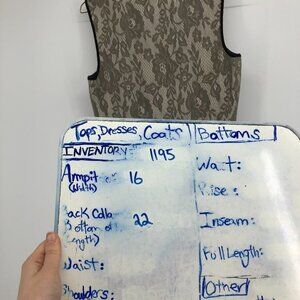 Tops, Dresses, Coats
INVENTORY: 1195
Armpit 16
(width)
Back Colla 22
Bottom of
Length)
Waist:
Shoulders:
Bottoms
Wa t:
Rise:
Inseam:
Full Length:
Other